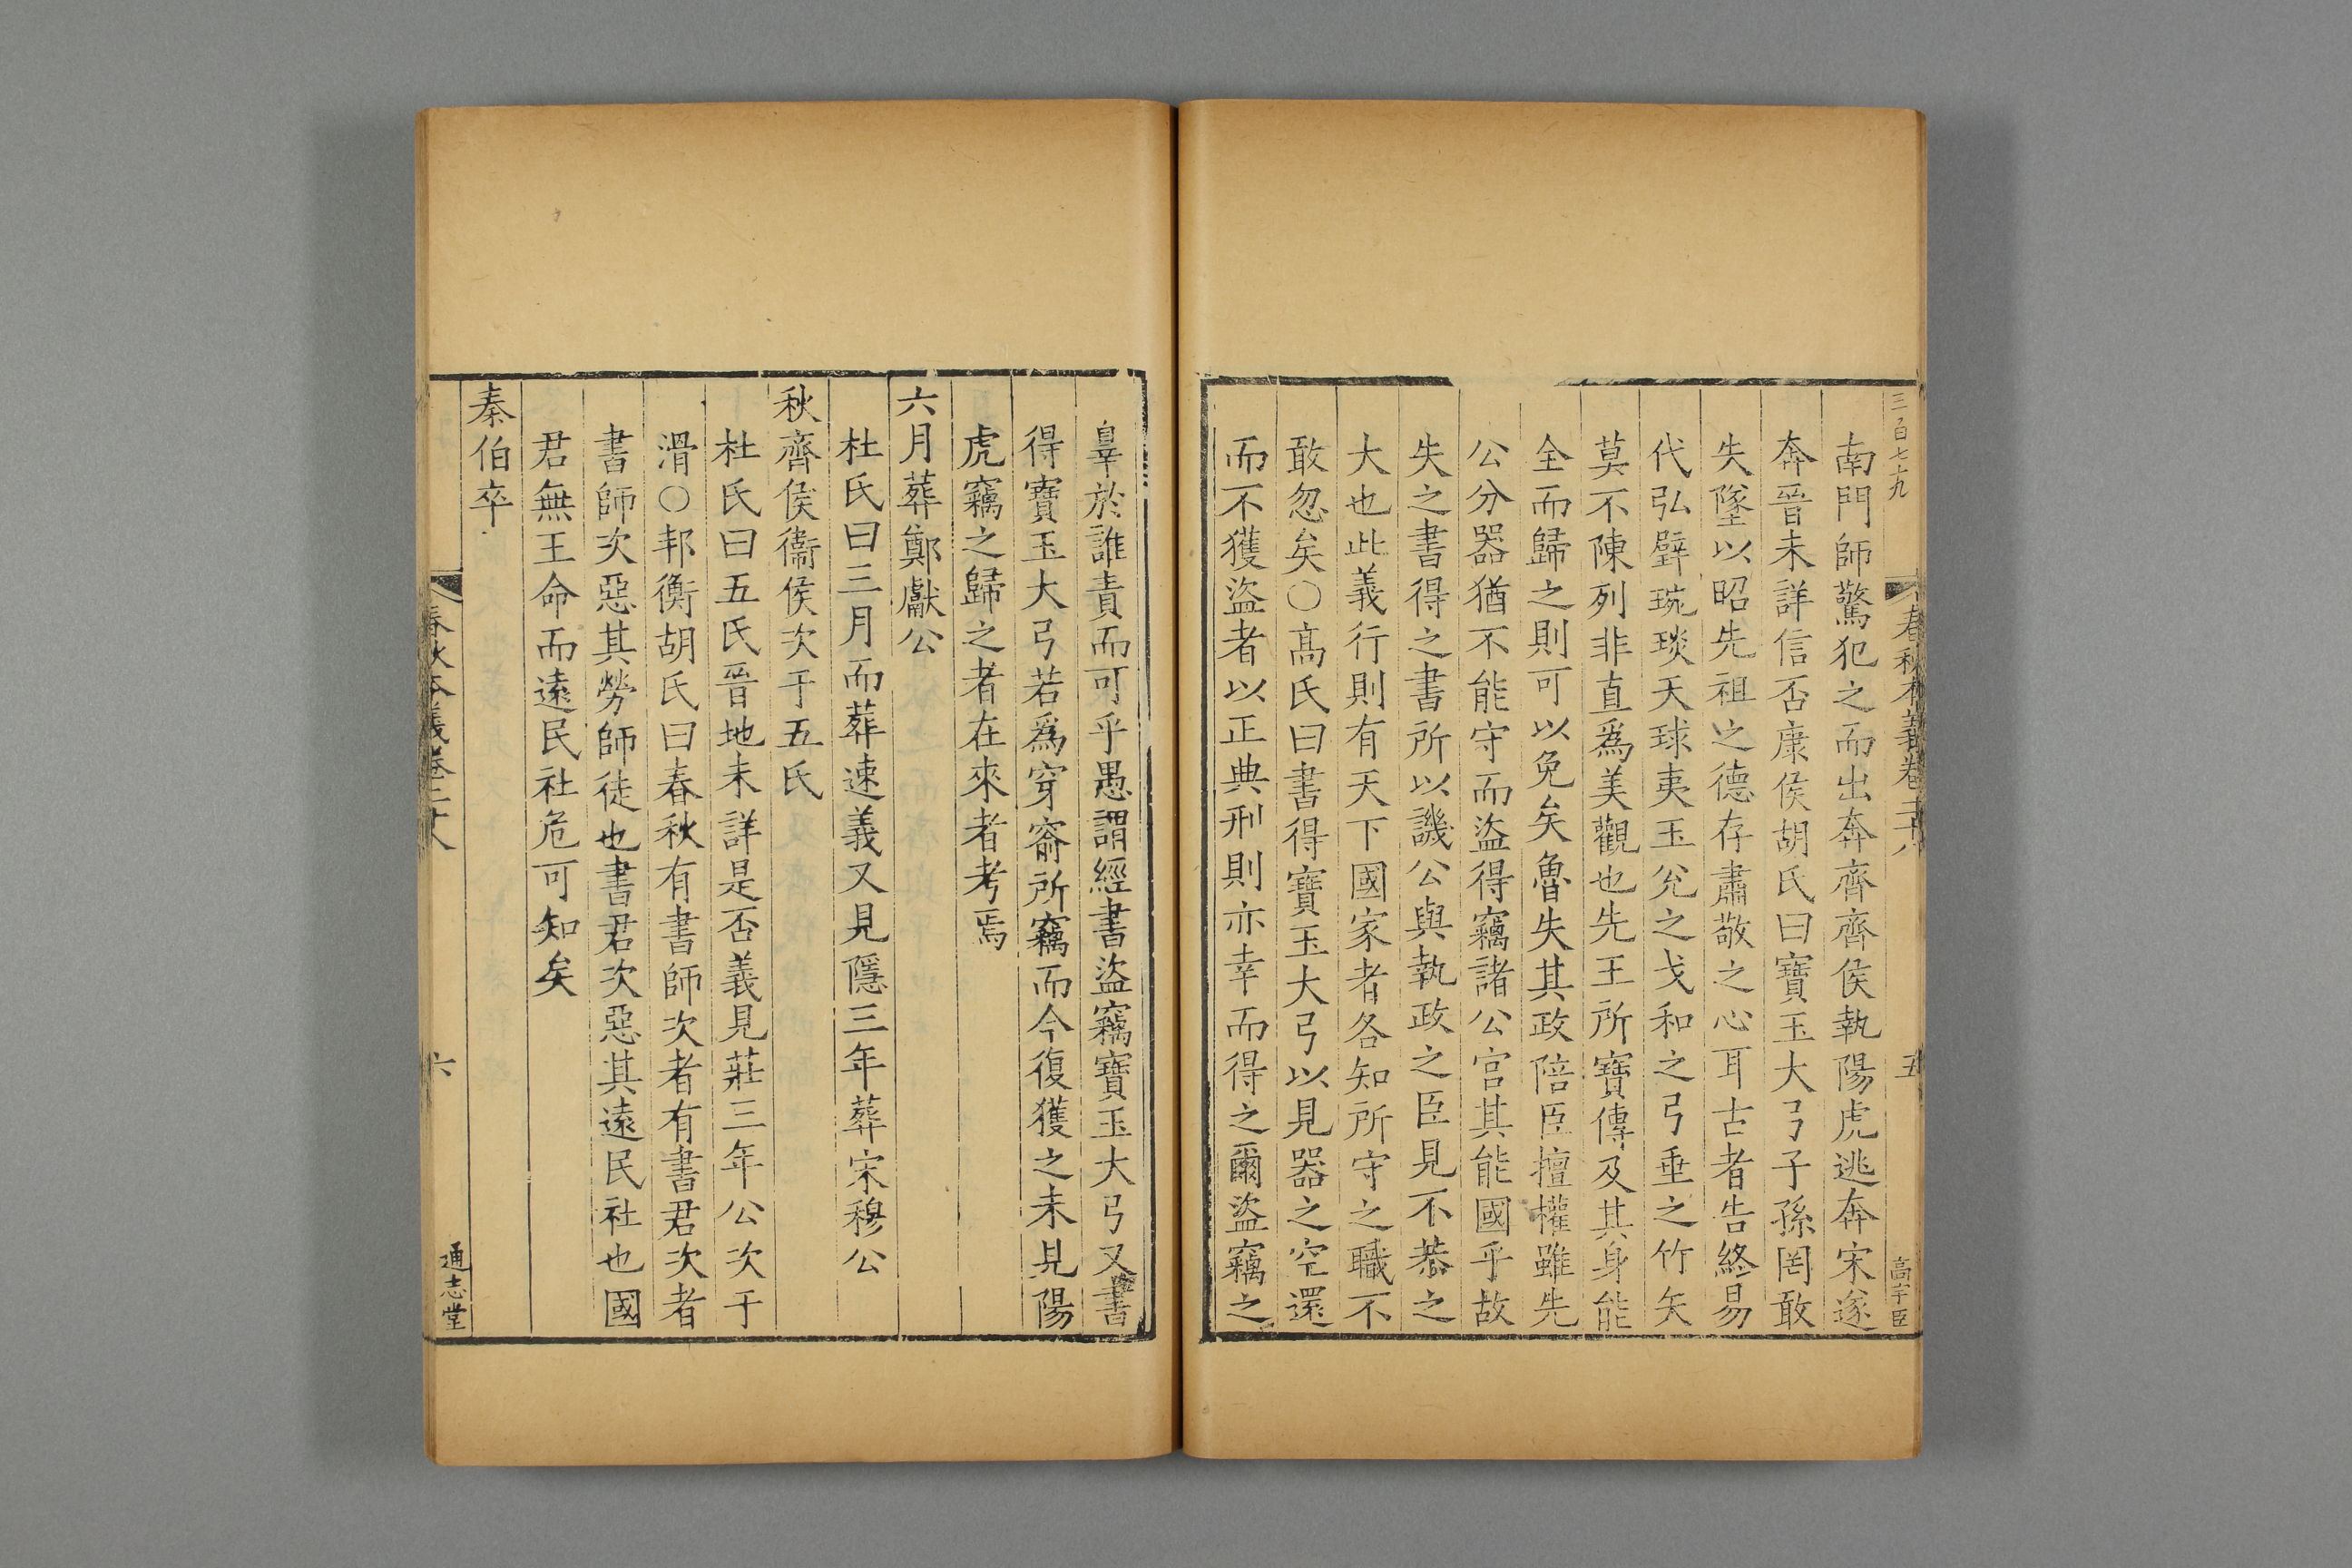 三百七十九
春秋本義卷二十八
五
高宇臣
南門師驚犯之而出奔齊齊侯執陽虎逃奔宋遂
奔晉未詳信否康侯胡氏曰寶玉大弓子孫罔敢
失墜以昭先祖之德存肅敬之心耳古者告終易
代弘璧琬琰天球夷玉兊之戈和之弓垂之竹矢
莫不陳列非直爲美觀也先王所寶傳及其身能
全而歸之則可以免矣魯失其政陪臣擅權雖先
公分器猶不能守而盜得竊諸公宮其能國乎故
失之書得之書所以譏公與執政之臣見不恭之
大也此義行則有天下國家者各知所守之職不
敢忽矣○髙氏曰書得寶玉大弓以見器之空還
而不獲盜者以正典刑則亦幸而得之爾盜竊之
辠於誰責而可乎愚謂經書盜竊寶玉大弓又書
得寶玉大弓若爲穿窬所竊而今復獲之未見陽
虎竊之歸之者在來者考焉
六月葬鄭獻公
杜氏曰三月而葬速義又見隱三年葬宋穆公
秋齊侯衞侯次于五氏
杜氏曰五氏晉地未詳是否義見莊三年公次于
滑○邦衡胡氏曰春秋有書師次者有書君次者
書師次惡其勞師徒也書君次惡其遠民社也國
君無王命而遠民社危可知矣
秦伯卒
春秋本義卷二十八
六
通志堂